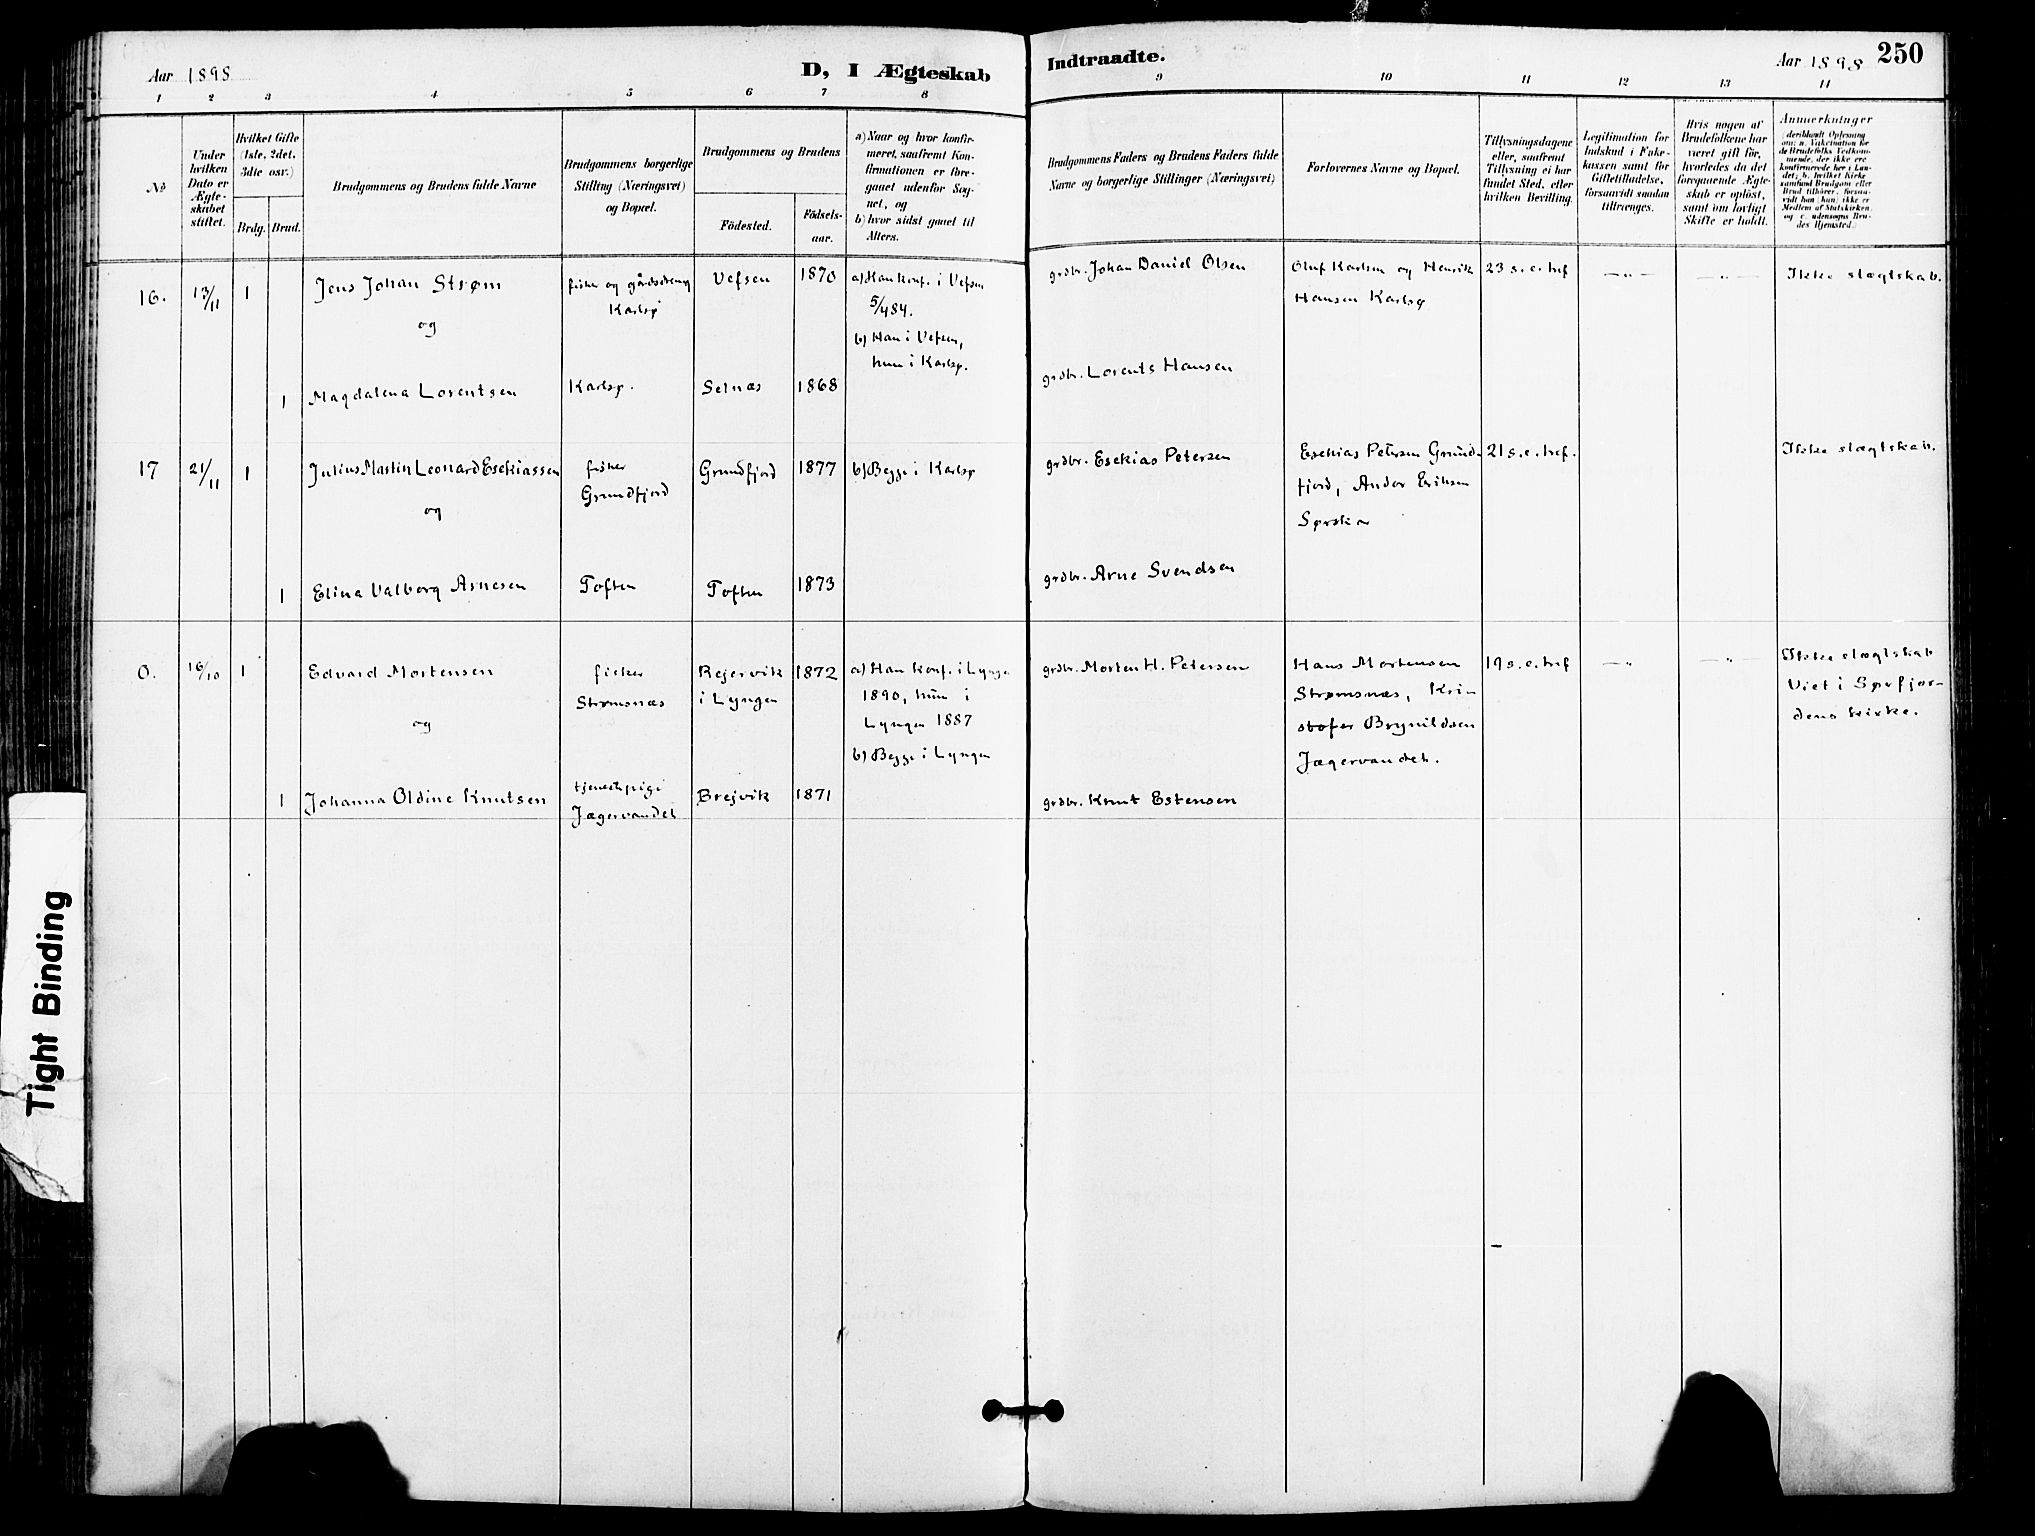 Aar 1898
D, I Ægteskab
Indtraadte.
Aar 1898
250
1 2 3 4 5 6 7 8 9 10 11 12 13 14
No
Under hvilken Dato er Ægteskabet stiftet.
Hvilket Gifte (1ste, 2det, 3die osv.)
Brdg. Brud.
Brudgommens og Brudens fulde Navne
Brudgommens borgerlige Stilling (Næringsvei) og Bopæl.
Brudgommens og Brudens
Födested.
Födsels-aar.
a) Naar og hvor konfir-
meret, saafremt Kon-
firmationen er fore-
gaaet udenfor Sog-
net, og
b) hvor sidst gaaet til
Alters.
Brudgommens Faders og Brudens Faders fulde
Navne og borgerlige Stillinger (Næringsvei)
Forlovernes Navne og Bopæl.
Tillysningsdagene
eller, saafremt
Tillysning ei har
fundet Sted, efter
hvilken Bevilling.
Legitimation for
Indskud i Enke-
kassen samt for
Giftetilladelse,
forsaavidt saadan
tiltrænges.
Hvis nogen af
Brudefolkene har
været gift før,
hvorledes da det
foregaaende Ægte-
skab er oplöst,
samt om lovligt
Skifte er holdt.
Anmerkninger
(deriblandt Oplysning
om: a. Vakcination for
de Brudefolks Vedkom-
mende, der ikke ere
konfirmerede her i Lan-
det; b. hvilket Kirke-
samfund Brudgom eller
Brud tilhører, forsaa-
vidt han (hun) ikke er
Medlem af Statskirken,
og c. udensogns Bru-
des Hjemsted.)
16. 13/11 1 Jens Johan Strøm
og
fisker og gårdsdreng
Karlsø
Vefsen 1870
a) Han konf. i Vefsen
5/4 84.
b) Han i Vefsen,
hun i Karlsø.
grdbr. Johan Daniel Olsen
Oluf Karlsen og Henrik
Hansen Karlsø
23 s. e. tref
Ikke slægtskab.
1 Magdalena Lorentsen
Karlsø.
Selnæs 1868
grdbr. Lorents Hansen
17 21/11 1 Julius Martin Leonard Esekiassen
og
fisker
Grundfjord
Grundfjord 1877
b) Begge i Karlsø
grdbr. Esekias Petersen
Esekias Petersen Grund-
fjord, Andor Eriksen
21 s. e. tref.
Ikke slægtskab.
1 Elina Valborg Arnesen
Toften
Toften 1873
grdbr. Arne Svendsen
0. 16/10 1 Edvard Mortensen
og
fisker
Strømsnæs
Rejervik
i Lyngen
1872
a) Han konf. i Lyngen
1890, hun i
Lyngen 1887
b) Begge i Lyngen
grdbr. Morten H. Petersen
Hans Mortensen
Strømsnæs, Kri-
stofer Brynildsen
Jægervandet.
19 s. e. tref
Ikke slægtskab
Viet i Sørfjor-
dens kirke.
1 Johanna Oldine Knutsen
tjenestpige
Jægervandet
Brejvik 1871
grdbr. Knut Estensen
Tight Binding